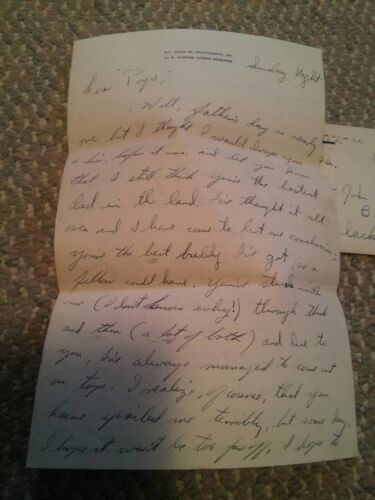 LT. JOHN R. HUTCHESON, JR.
U. S. MARINE CORPS RESERVE
Sunday Night
Dear "Pops,"
Well, father's day is nearly
over but I thought I would drop you
a line, before it was, and let you know
that I still think you're the best
dad in the land. I've thought it all
over and I have come to but one conclusion;
you're the best buddy I've got, or a
fellow could have. You've stuck with
me (I don't know why!) through thick
and thin (a lot of both) and due to
you, I've always managed to come out
on top. I realize, of course, that you
have spoiled me terribly, but some day,
I hope it won't be too far off, I hope to
John